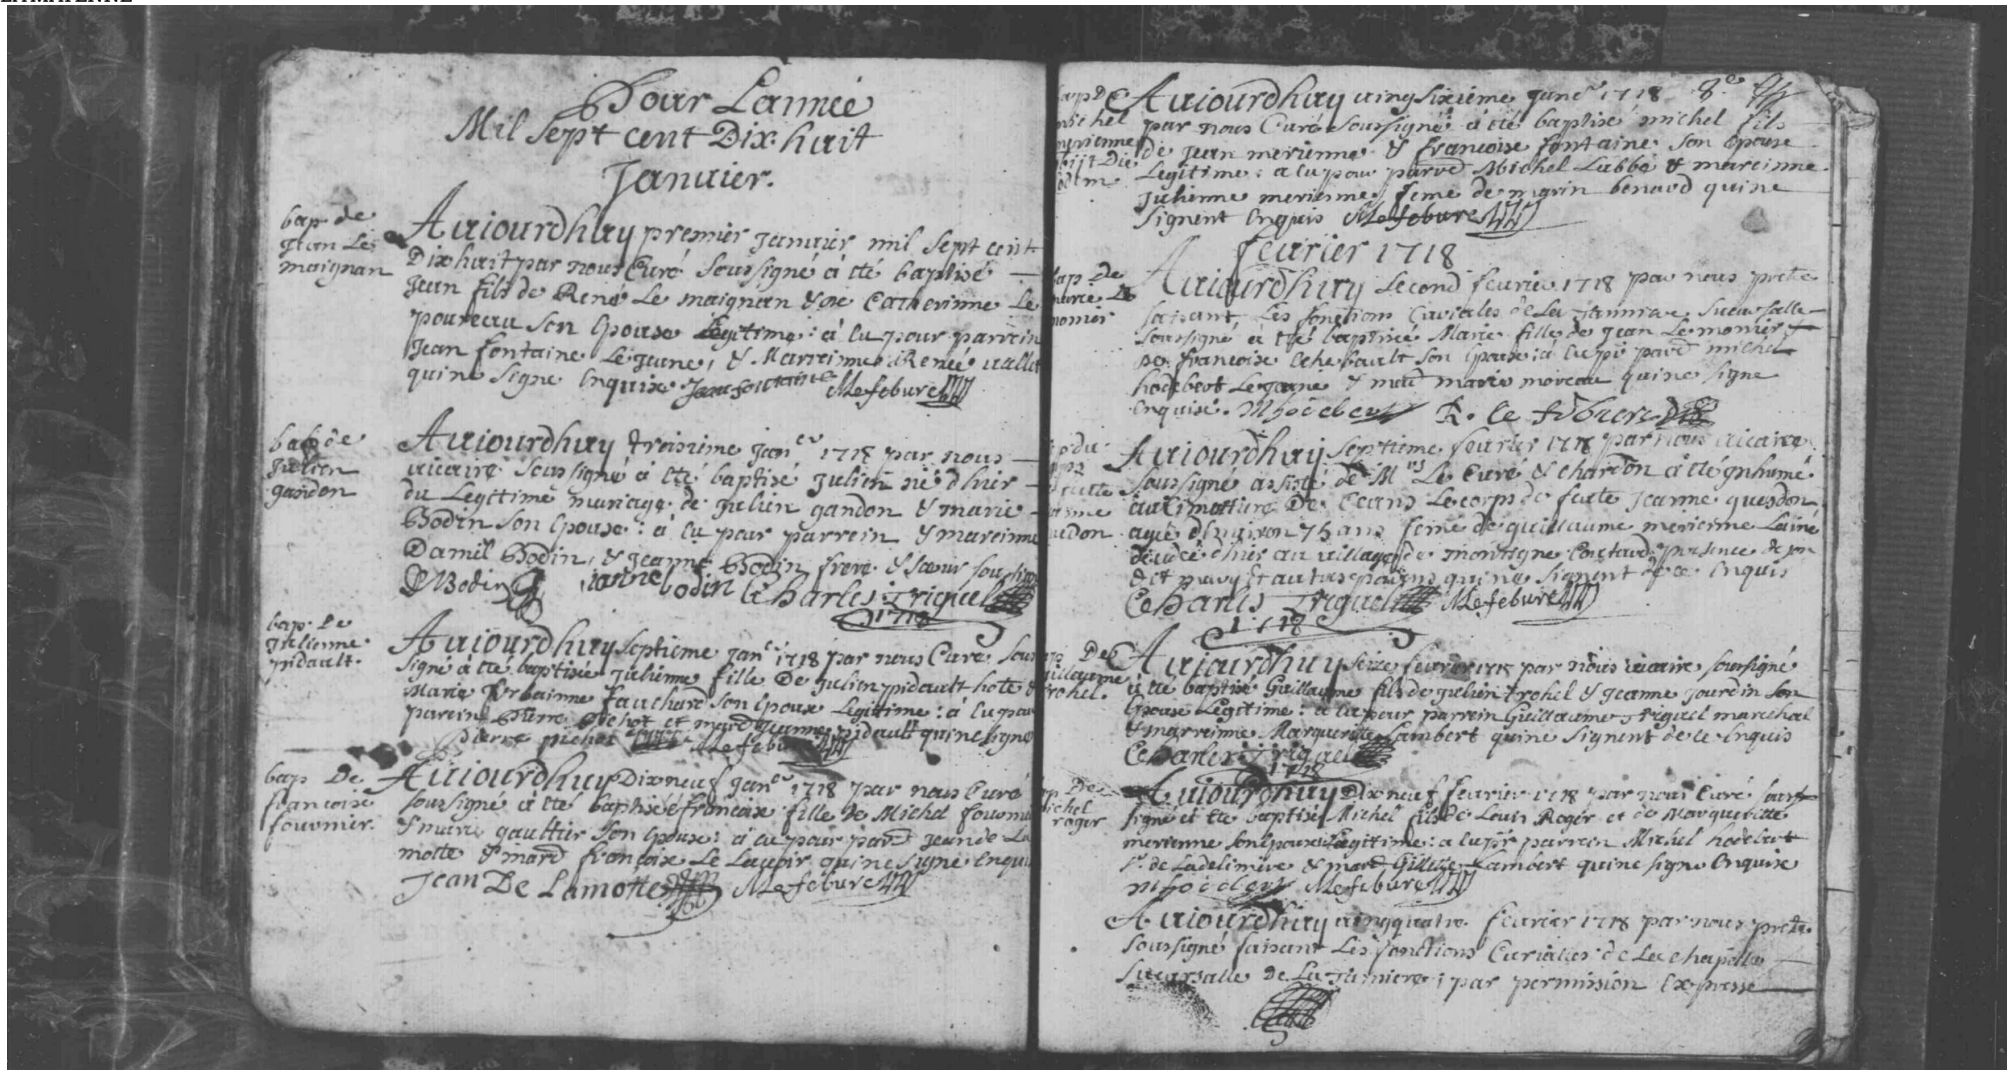 Pour Lannée
Mil Sept cent Dix huit
Januier.
bap de
Jean Le
maignan
Auiourdhuy premier Januier mil Sept cent
Dix huit par nous Curé Soussigné à été baptisé
Jean fils de René Le maignan & de Catherinne Le
poureau Son Epouse Légitime: à eu pour parrein
Jean fontaine Le Jeune, & Marreinne Renée vallet
quine Signe Enquise Jean fontaine MLefebure
bab de
Julien
gandon
Auiourdhuy troisième Janer 1718 par nous
vicaire Soussigné à été baptisé Julien né d'hier
du Legittime mariage de Julien gandon & marie
Bodin Son Epouse: à eu pour parrein & mareinne
Daniel Bodin, & Jeanne Bodin frere & Sœur Soussignés
D Bodin Janne bodin Charles Triguel
1718
bap. De
Julienne
pidault.
Auiourdhuy Septieme Janer 1718 par nous Curé Sous
signé à été baptisée Julienne fille De Julien pidault hote &
Marie Urbainne fauchard Son Epouse Légitime: à eu pour
parein Pierre pichot et mard Jeanne pidault quine signe
Pierre pichot MLefebure
bap De
francoise
fournier.
Auiourdhuy Dixneuf Janer 1718 par nous Curé
soussigné à été baptisée francoise fille de Michel fournier
& marie gaultier Son Epouse: à eu pour pard Jean de La
motte & mard francoise Le Lavoir quine Signe Enquise
Jean De Lamotte MLefebure
bap De
michel
merienne
Auiourdhuy vingsixieme Janer 1718 8e
par nous Curé Soussigné à été baptisé michel fils
de Jean merienne & francoise fontaine Son Epouse
Légitime: a eu pour parred Michel Labbé & mareinne
Julienne merienne feme de marin benard quine
Signent Enquis MLefebure
feurier 1718
bap De
marie Le
monier
Auiourdhuy Second feurier 1718 par nous pretre
faisant Les fonctions Curiales de La Taniere Sucursalle
Soussigné à été baptisée Marie fille de Jean Le monier
& francoise Echebault Son Epouse: à eu pr pard michel
hodebert Le Jeune & mard marie moreau quine signe
Enquise. Mhodebert R. le febure
Auiourdhuy Septieme feurier 1718 par nous vicaire
Soussigné assisté de Mrs Le Curé & chardon à été Inhumé
au Cimetiere De Ceans Le corps de feüe Jeanne guesdon
agée d'Enuiron 75 ans feme de guillaume merienne Lainé
décedé d'hier au village de montigne presence de son
dit mary & autres parens quine signent de ce Enquis
Charles Triguel MLefebure
1718
bap De
guillaume
trohel.
Auiourdhuy Seize feurier 1718 par nous vicaire soussigné
à été baptisé Guillaume fils de Julien trohel & Jeanne Jourdin Son
Epouse Légitime: a eu pour parrein Guillaume Triguel marechal
& marreinne Marguerite Lambert quine Signent de ce Enquis
Charles Triguel
1718
bap De
michel
roger
Auiourdhuy Dixneuf feurier 1718 par nous Curé sous
signé et été baptisé Michel fils de Louis Roger et de Margueritte
merienne son Epouse Légitime: a eu pr parrein Michel hodebert
Sr de Ladelinière & mard Gillette Lambert quine signe Enquise
Mhodebert MLefebure
Auiourdhuy vingquatre feurier 1718 par nous pretre
soussigné faisant Les fonctions Curiales de La chapelle
Sucursalle de La Taniere; par permission Expresse